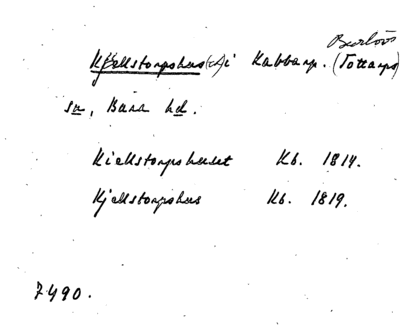 Burlöv
Kjellstorpshus(et) i Kabbarp. (Tottarps)
sn, Bara hd.
Kiellstorpshuset Kb. 1814.
Kjellstorpshus Kb. 1819.
7490.